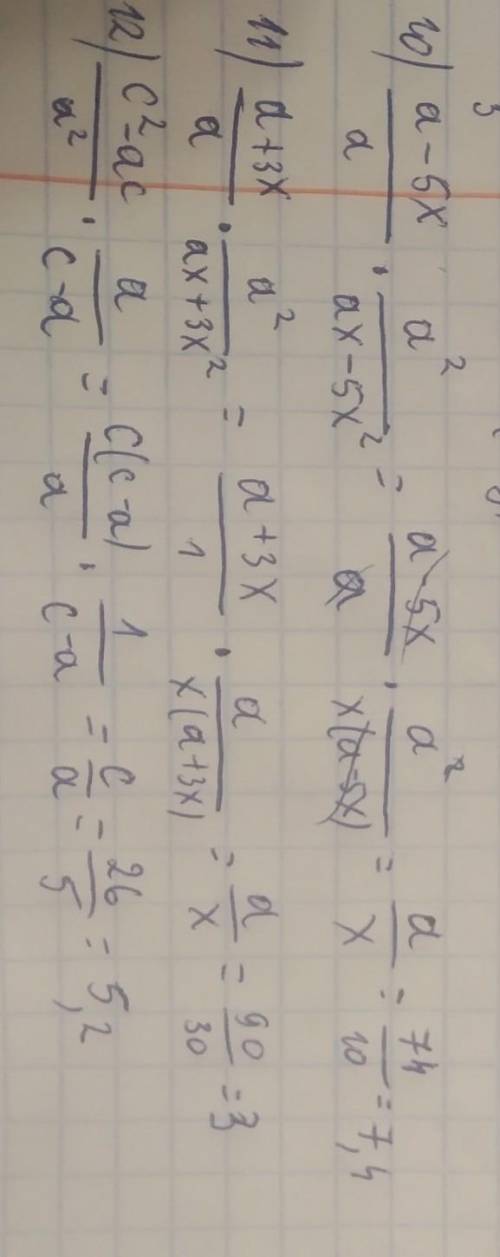 10) (a - 5x)/a · a²/(ax - 5x²) = (a - 5x)/a · a²/(x(a - 5x)) = a/x = 74/10 = 7,4
11) (a + 3x)/a · a²/(ax + 3x²) = (a + 3x)/1 · a/(x(a + 3x)) = a/x = 90/30 = 3
12) (c² - ac)/a² · a/(c - a) = c(c - a)/a · 1/(c - a) = c/a = 26/5 = 5,2